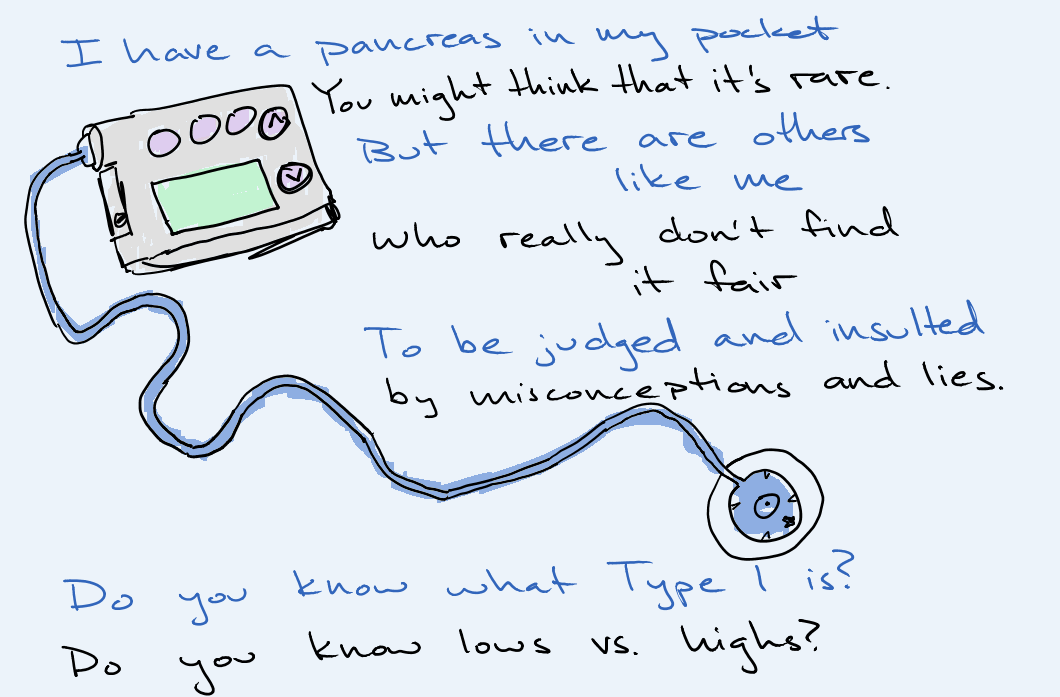 I have a pancreas in my pocket
You might think that it's rare.
But there are others
like me
who really don't find
it fair
To be judged and insulted
by misconceptions and lies.
Do you know what Type 1 is?
Do you know lows vs. highs?